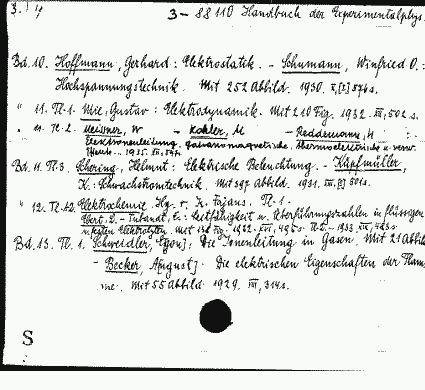 3-88110 Handbuch der Experimentalphys.
Bd. 10. Hoffmann, Gerhard: Elektrostatik. - Schumann, Winfried O.:
Hochspannungstechnik. Mit 252 Abbild. 1930.
" 11. Tl. 1. Mie, Gustav: Elektrodynamik. Mit 210 Fig. 1932. III, 502 s.
" 11. Tl. 2. Meissner, W - Kohler, M - Reddemann, H :
Elektronenleitung. Galvanomagnetische, thermoelektrische u. verw.
1935.
Bd. 11. Tl. 3. Schering, Helmut: Elektrische Beleuchtung. - Küpfmüller,
K.: Schwachstromtechnik. Mit 397 Abbild. 1931.
" 12. Tl. 1.2. Elektrochemie. Hg. v. K. Fajans. Tl. 1 -
Tubandt, C.: Leitfähigkeit u. Überführungszahlen in flüssigen
u. festen Elektrolyten. 1932. 1933.
Bd. 13. Tl. 1. Schweidler, Egon]: Die Ionenleitung in Gasen. Mit 21 Abbild.
- Becker, August]. Die elektrischen Eigenschaften der Flam-
me. Mit 55 Abbild. 1929. III, 314 s.
S